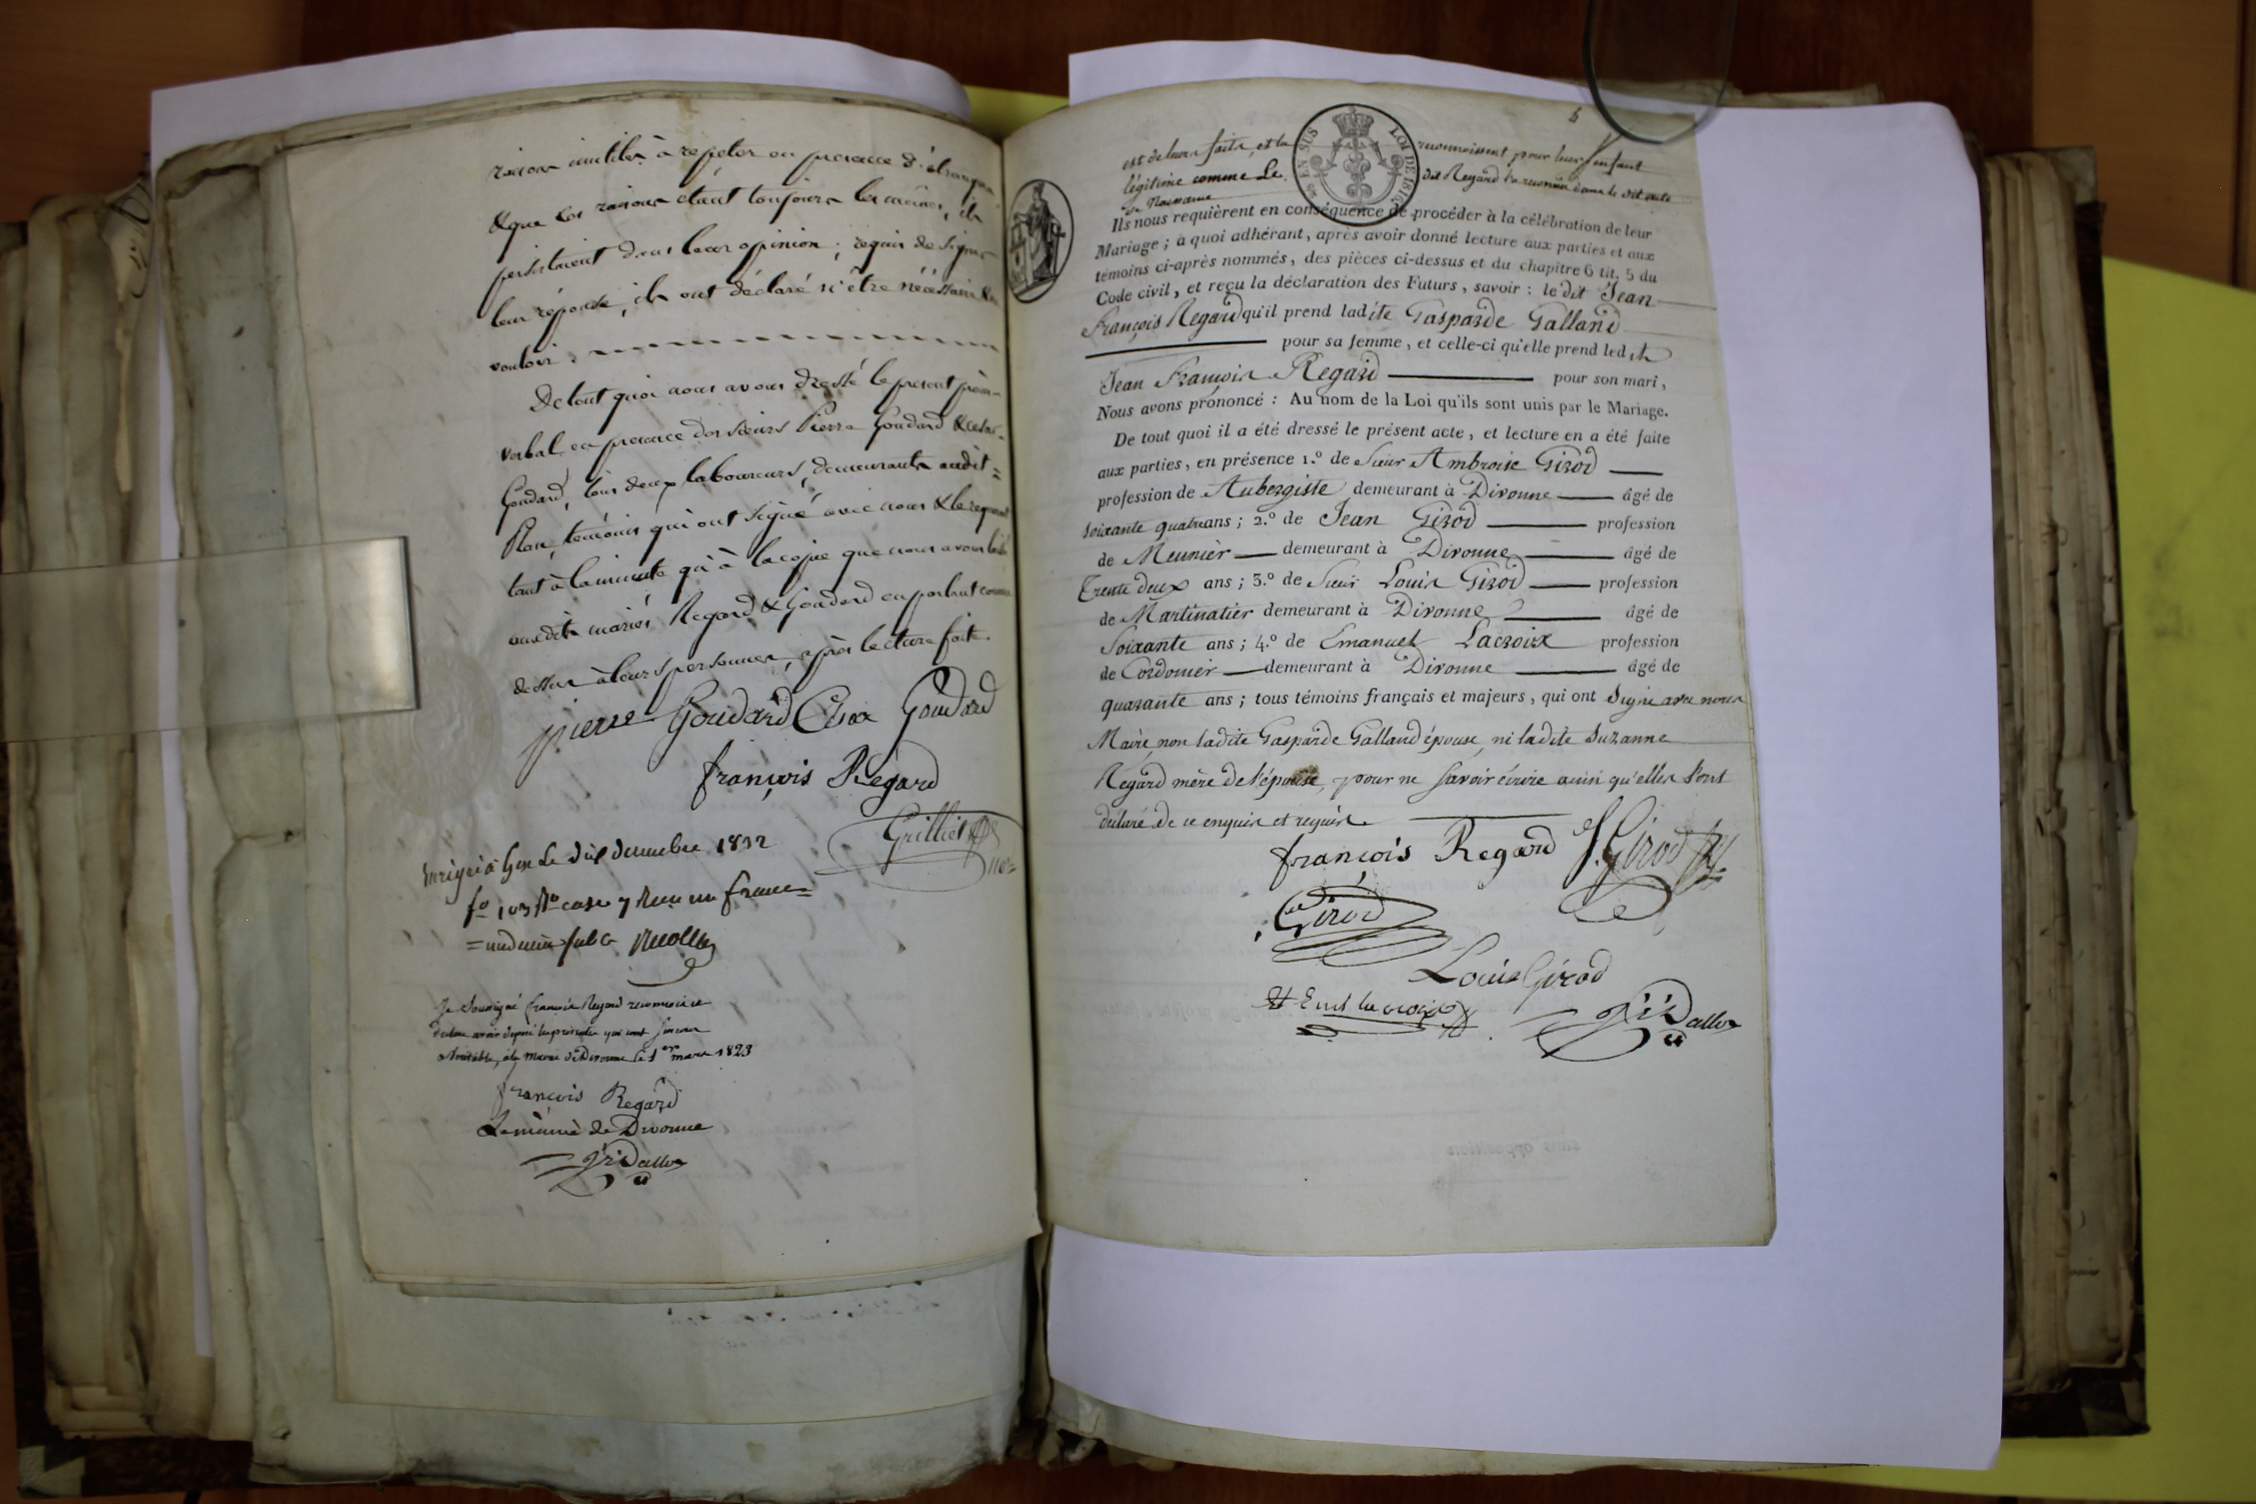 raisons inutiles à repeter en presence d'étrangers
& que les raisons étant toujours les mêmes, ils
persistaient dans leur opinion; requis de signer
leur réponse, ils ont déclaré n'être nécessaire &
vouloir.
De tout quoi nous avons dressé le present procès
verbal en presence des sieurs Pierre Goudard &
Goudard, tous deux laboureurs, demeurants audit
Plan, temoins qui ont signé avec nous & le requerant
tant à la minute qu'à la copie que nous avons
auxdits mariés Regard & Goudard en parlant comme
dessus à leurs personnes, après lecture faite.
pierre Goudard Goudard
françois Regard
Grilliet
à Gex le dix decembre 1822
fo 103 Ro case 7 Reçu un franc
Je soussigné françois Regard reconnois et
déclare avoir déposé les présentes qui sont sincères
& véritables, à la mairie de Divonne le 1er mars 1823
françois Regard
Le maire de Divonne
6
est de leurs faits, et la reconnoissent pour leur enfant
légitime comme le dit Regard l'a reconnu dans le dit acte
de Naissance
EN SUS LOI DE 1816
Ils nous requièrent en conséquence de procéder à la célébration de leur
Mariage; à quoi adhérant, après avoir donné lecture aux parties et aux
témoins ci-après nommés, des pièces ci-dessus et du chapitre 6 tit. 5 du
Code civil, et reçu la déclaration des Futurs, savoir: le dit Jean
François Regard qu'il prend ladite Gasparde Galland
pour sa femme, et celle-ci qu'elle prend ledit
Jean François Regard pour son mari,
Nous avons prononcé: Au nom de la Loi qu'ils sont unis par le Mariage.
De tout quoi il a été dressé le présent acte, et lecture en a été faite
aux parties, en présence 1.º de Sieur Ambroise Girod
profession de Aubergiste demeurant à Divonne âgé de
soixante quatre ans; 2.º de Jean Girod profession
de Meunier demeurant à Divonne âgé de
Trente deux ans; 3.º de Sieur Louis Girod profession
de Martinatier demeurant à Divonne âgé de
Soixante ans; 4.º de Emanuel Lacroix profession
de Cordonier demeurant à Divonne âgé de
quarante ans; tous témoins français et majeurs, qui ont Signé avec nous
Maire, non ladite Gasparde Galland épouse, ni ladite Suzanne
Regard mère de l'épouse, pour ne savoir écrire ainsi qu'elles l'ont
déclaré de ce enquis et requis.
françois Regard J. Girod
Girod
Louis Girod